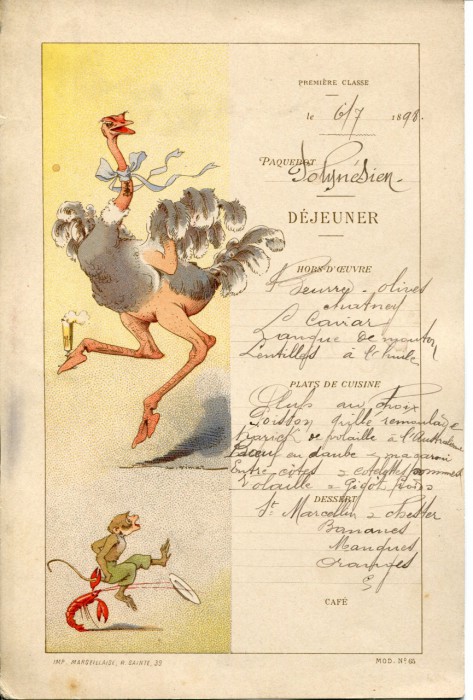 PREMIÈRE CLASSE
le 6/7 1898.
PAQUEBOT Polynésien.
DÉJEUNER
HORS-D'ŒUVRE
Beurre - olives
chatney
Caviar
Langue de mouton
Lentilles à l'huile
PLATS DE CUISINE
Œufs au choix
Poisson grillé remoulade
de volaille à l'Australienne
Bœuf en daube macaroni
Entre-côtes côtelettes pommes
Volaille Gigot
DESSERT
St Marcellin Chester
Bananes
Mangues
Oranges
CAFÉ
IMP. MARSEILLAISE, R. SAINTE, 39
MOD. No 65